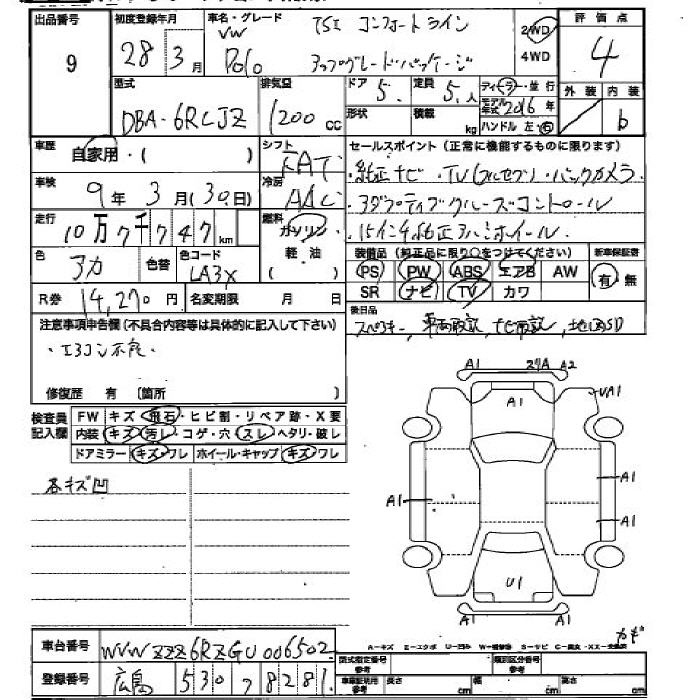 出品番号 初度登録年月 車名・グレード TSI コンフォートライン 2WD 評価点
9 28年3月 VW Polo アップグレードパッケージ 4WD 4
型式 排気量 ドア 定員 ディーラー・並行 外装 内装
DBA-6RCJZ 1200cc 5 5人 モデル年式 2016年 b
形状 積載 kg ハンドル 左・右
車歴 自家用・( ) シフト FAT セールスポイント(正常に機能するものに限ります)
車検 9年3月(30日) 冷房 AAC ・純正ナビ・TV(フルセグ)・バックカメラ
走行 10万7千747km 燃料 ガソリン ・アダプティブクルーズコントロール
色 アカ 色替 色コード LA3X 軽油 ・15インチ純正アルミホイール
装備品(純正品に限り○をつけてください) 新車保証書
PS PW ABS エアB AW 有・無
R券 14,270円 名変期限 月 日 SR ナビ TV カワ
注意事項申告欄(不具合内容等は具体的に記入して下さい) 後日品
・エアコン不良 スペアキー, 車両取説, ナビ取説, 地図SD
修復歴 有 〔箇所 〕
検査員記入欄 FW キズ・飛石・ヒビ割・リペア跡・X要
内装 キズ・汚レ・コゲ・穴・スレ・ヘタリ・破レ
ドアミラー キズ・ワレ ホイール・キャップ キズ・ワレ
各キズ凹
A1 A2
A1 A1
A1
A1
A1
U1
車台番号 WVWZZZ6RZGU006502
A－キズ E－エクボ U－凹み
型式指定番号 参考 類別区分番号 参考
登録番号 広島 530 ﾌ 8281
車庫証明用参考 長さ cm 幅 cm 高さ cm